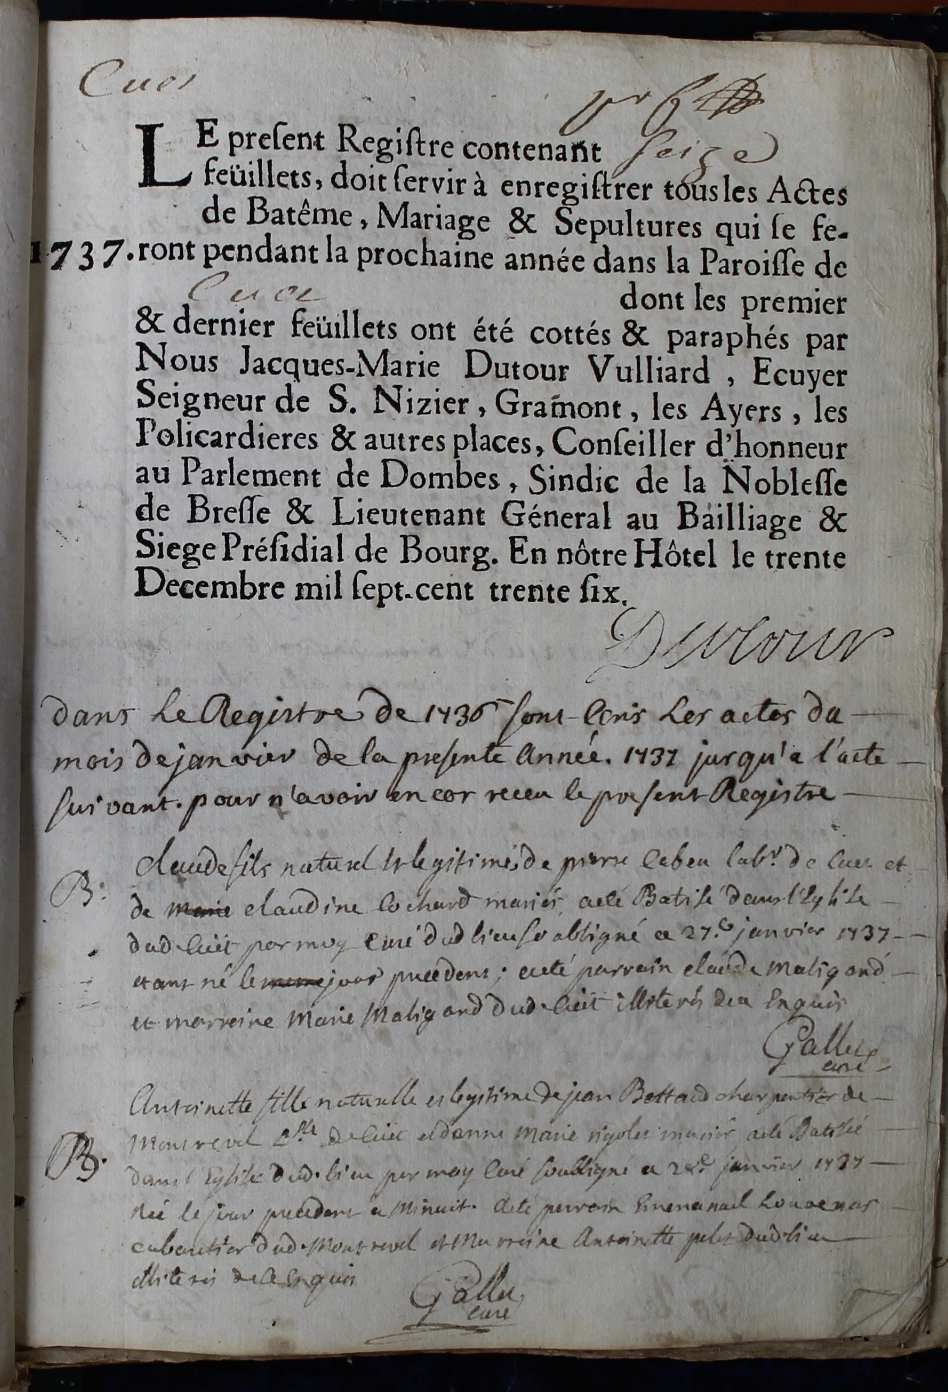 Cuet
pr f
LE preſent Regiſtre contenant ſeize
feüillets, doit ſervir à enregiſtrer tous les Actes
de Batême, Mariage & Sepultures qui ſe fe-
1737. ront pendant la prochaine année dans la Paroiſſe de
Cuet dont les premier
& dernier feüillets ont été cottés & paraphés par
Nous Jacques-Marie Dutour Vulliard, Ecuyer
Seigneur de S. Nizier, Gram̃ont, les Ayers, les
Policardieres & autres places, Conſeiller d'honneur
au Parlement de Dombes, Sindic de la Nobleſſe
de Breſſe & Lieutenant Géneral au Bailliage &
Siege Préſidial de Bourg. En nôtre Hôtel le trente
Decembre mil ſept-cent trente ſix.
Dutour
dans Le Registre de 1736 sont Ecris Les actes du
mois de janvier de la presente Année. 1737 jusqu'a l'acte
suivant. pour n'avoir encor receu le present Registre
B: Claude fils naturel & legitime de pierre labr de Cuet et
de Marie claudine Cochard mariés, a eté Batisé dans l'Eglise
dud. Cuët par moy Curé dud lieu soubsigné ce 27e janvier 1737
etant né le jour precedent; a eté parrain claude Maligand
et marraine Marie Maligand dud. Cuët illiterés de ce Enquis
Gallet
curé
B. Antoinette fille naturelle et legitime de jean charpentier de
Montrevel de Cuet et danne Marie mariés a eté Batisée
dans l'Eglise dud. lieu par moy Curé soubsigné ce 28e janvier 1737
Née le jour precedent a Minuit. a eté parrain Emmanuel
cabaretier dud. Montrevel et Marraine Antoinette dud. lieu
illiterés de ce Enquis
Gallet
curé